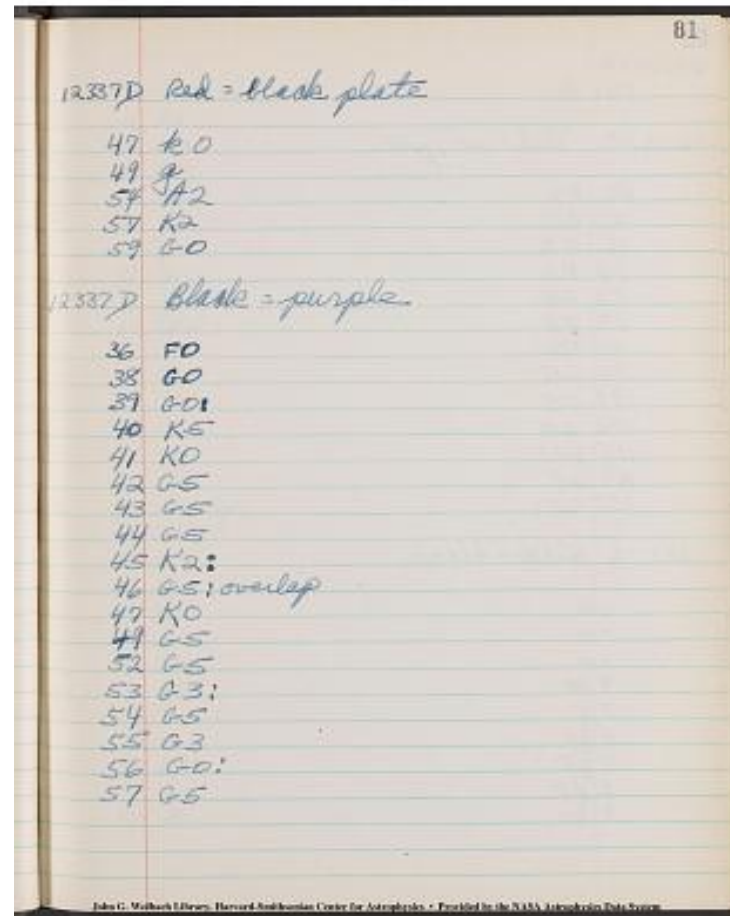 81
12337D Red = black plate
47 k0
49 g
54 A2
57 K2
59 G0
12337D Black = purple
36 F0
38 G0
39 G0:
40 K5
41 K0
42 G5
43 G5
44 G5
45 K2:
46 G5: overlap
47 K0
49 G5
52 G5
53 G3:
54 G5
55 G3
56 G0:
57 G5
John G. Wolbach Library, Harvard-Smithsonian Center for Astrophysics • Provided by the NASA Astrophysics Data System